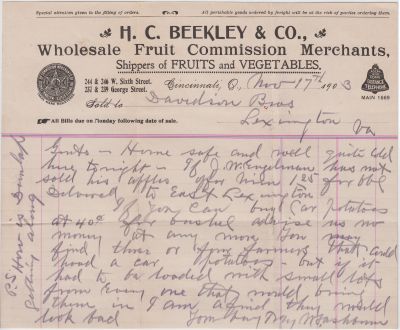 Special attention given to the filling of orders.
All perishable goods ordered by freight will be at the risk of parties ordering them.
H. C. BEEKLEY & CO.,
Wholesale Fruit Commission Merchants,
Shippers of FRUITS and VEGETABLES,
244 & 246 W. Sixth Street.
237 & 239 George Street.
Cincinnati, O, Nov 17th 1903
LONG DISTANCE TELEPHONE
MAIN 1969
Sold to Davidson Bros
Lexington Va
All Bills due on Monday following date of sale.
Gents - Home safe and well quite cold
here tonight - If J. W. Engelman has not
sold his apples offer him 1.25 per bbl
Delivered to East Lexington
If you can buy car Potatoes
at 40¢ per bushel advise us no
money at any more You may
find three or four farmers that could
load a car Potatoes - but if it
had to be loaded with small lots
from every one that would bring
them in I am afraid they would
look bad
P.S. How is Dunlap
getting along